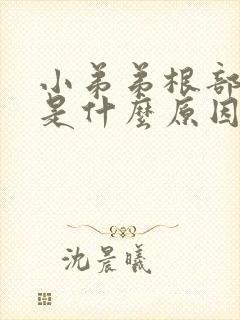 小弟弟根部
是什麼原因
沈晨曦